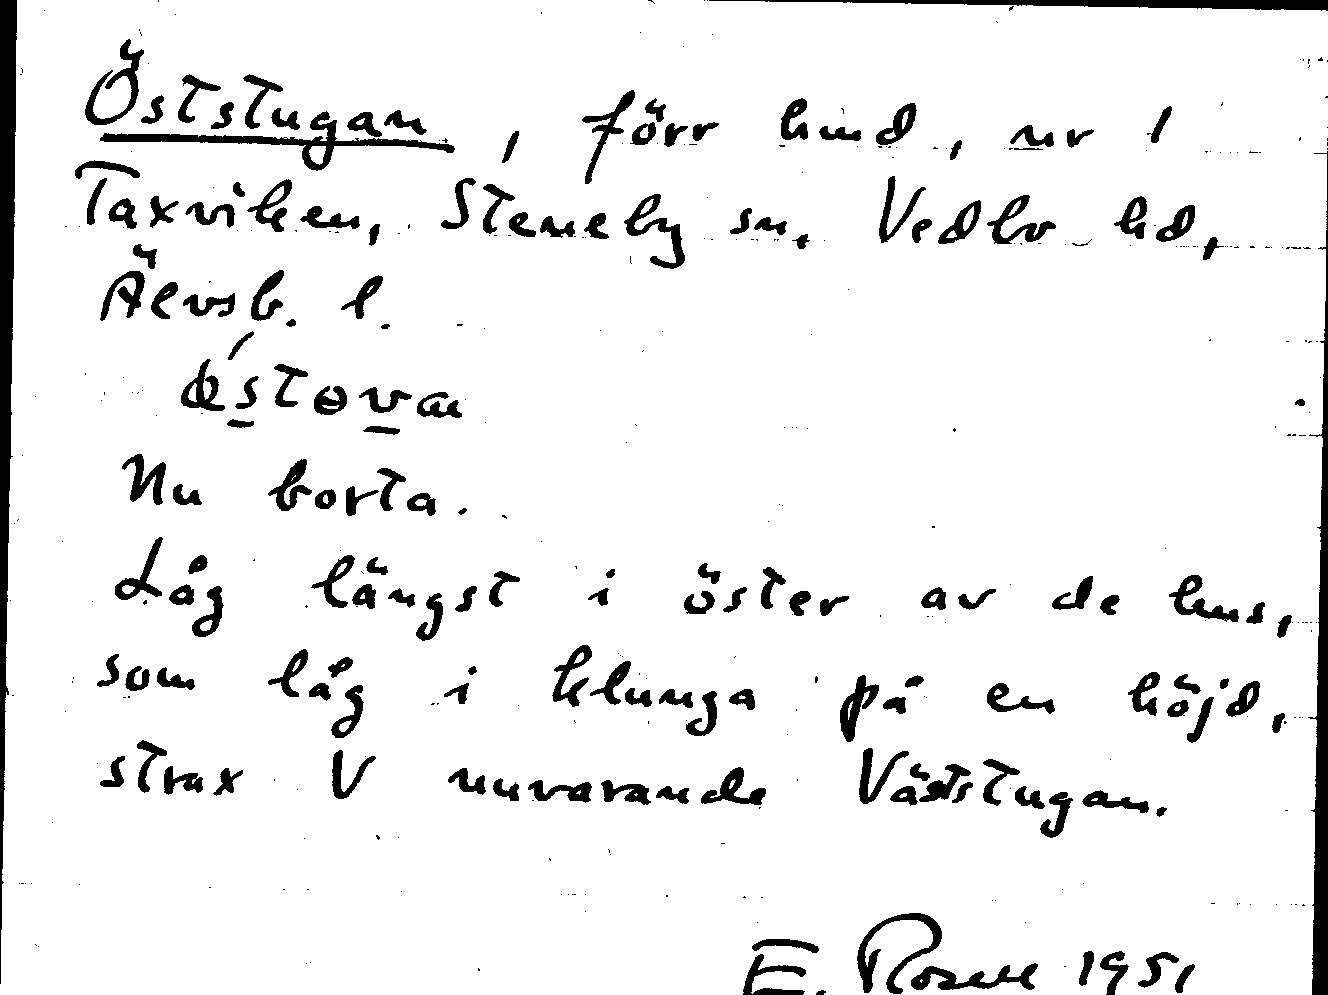 Öststugan, förr hmd, nr 1
Taxviken, Steneby sn. Vedbo hd,
Älvsb. l.
Nu borta.
Låg längst i öster av de hus,
som låg i klunga på en höjd,
strax V nuvarande Väststugan.
E. Rosell 1951